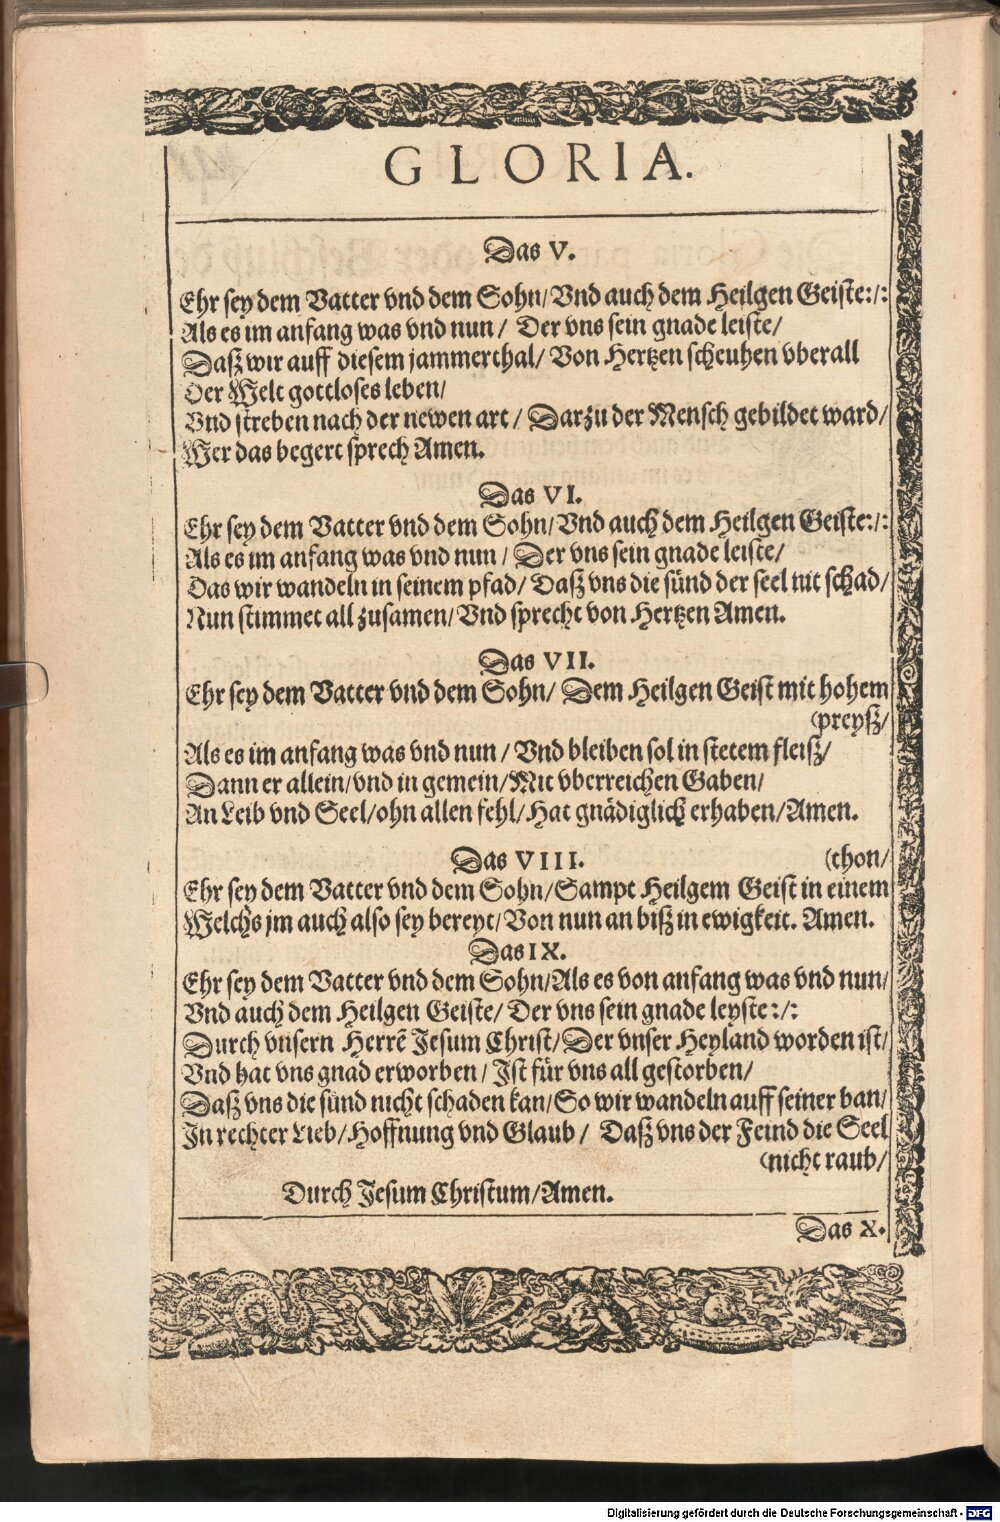 GLORIA.
Das V.
Ehr sey dem Vatter vnd dem Sohn/ Vnd auch dem Heilgen Geiste:/:
Als es im anfang was vnd nun/ Der vns sein gnade leiste/
Daß wir auff diesem jammerthal/ Von Hertzen scheuhen vberall
Der Welt gottloses leben/
Vnd streben nach der newen art/ Darzu der Mensch gebildet ward/
Wer das begert sprech Amen.
Das VI.
Ehr sey dem Vatter vnd dem Sohn/ Vnd auch dem Heilgen Geiste:/:
Als es im anfang was vnd nun/ Der vns sein gnade leiste/
Das wir wandeln in seinem pfad/ Daß vns die sünd der seel nit schad/
Nun stimmet all zusamen/ Vnd sprecht von Hertzen Amen.
Das VII.
Ehr sey dem Vatter vnd dem Sohn/ Dem Heilgen Geist mit hohem
(preyß/
Als es im anfang was vnd nun/ Vnd bleiben sol in stetem fleiß/
Dann er allein/ vnd in gemein/ Mit vberreichen Gaben/
An Leib vnd Seel/ ohn allen fehl/ Hat gnädiglich erhaben/ Amen.
Das VIII. (thon/
Ehr sey dem Vatter vnd dem Sohn/ Sampt Heilgem Geist in einem
Welchs jm auch also sey bereyt/ Von nun an biß in ewigkeit. Amen.
Das IX.
Ehr sey dem Vatter vnd dem Sohn/ Als es von anfang was vnd nun/
Vnd auch dem Heilgen Geiste/ Der vns sein gnade leyste:/:
Durch vnsern Herrē Jesum Christ/ Der vnser Heyland worden ist/
Vnd hat vns gnad erworben/ Ist für vns all gestorben/
Daß vns die sünd nicht schaden kan/ So wir wandeln auff seiner ban/
In rechter Lieb/ Hoffnung vnd Glaub/ Daß vns der Feind die Seel
(nicht raub/
Durch Jesum Christum/ Amen.
Das X.
Digitalisierung gefördert durch die Deutsche Forschungsgemeinschaft - DFG